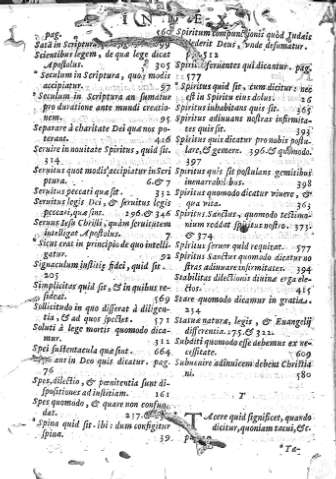 INDEX
pag. 560
Sata in Scriptura 99
Scientibus legem, de qua lege dicat
Apostolus. 305
* Seculum in Scriptura, quot modis
accipiatur. 97
* Seculum in Scriptura an sumatur
pro duratione ante mundi creatio-
nem. 95
Separare à charitate Dei quæ nos po-
terat. 426
Seruire in nouitate Spiritus, quid sit.
314
Seruitus quot modis accipiatur in Scri
ptura. 6.& 7
Seruitus peccati quæ sit. 332
Seruitus legis Dei, & seruitus legis
peccati, quæ sint. 296.& 346
Seruus Iesu Christi, quam seruitutem
intelligat Apostolus. 7
* Sicut erat in principio de quo intelli-
gatur. 92
Signaculum iustitiæ fidei, quid sit.
205
Simplicitas quid sit, & in quibus re-
sideat. 569
Sollicitudo in quo differat à diligen-
tia, & ad quot spectet. 571
Soluti à lege mortis quomodo dica-
mur. 311
Spei sustentacula quæ sint. 664
ant in Deo quis dicatur. pag.
76
Spes, dilectio, & pœnitentia sunt di-
spositiones ad iustitiam. 161
Spes quomodo, & quare non confun-
dat. 217.&
* Spina quid sit. ibi: dum configitur
spina. 39.
Spiritum compunctionis quòd Iudæis
dederit Deus, vnde desumatur.
p. 512
Spiritu feruentes qui dicantur. pag.
577
* Spiritus quid sit, cum dicitur: nec
est in Spiritu eius dolus. 26
Spiritus inhabitans quis sit. 365
Spiritus adiuuans nostras infirmita-
tes quis sit. 393
Spiritus quis dicatur pro nobis postu-
lare, & gemere. 396.& quomodo.
397
Spiritus quis sit postulans gemitibus
inenarrabilibus. 398
Spiritus quomodo dicatur viuere, &
qua vita. 363
Spiritus Sanctus, quomodo testimo-
nium reddat spiritui nostro. 373.
& 374
Spiritus feruor quid requirat. 577
Spiritus Sanctus quomodo dicatur no
stras adiuuare infirmitates. 394
Stabilitas dilectionis diuinæ erga ele-
ctos. 415
Stare quomodo dicamur in gratia.
254
Status naturæ, legis, & Euangelij
differentia. 175.& 322.
Subditi quomodo esse debemus ex ne-
cessitate. 609
Subuenire adinuicem debent Christia
ni. 580
T
TAcere quid significet, quando
dicitur, quoniam tacui, &c.
pag.
*Ta-